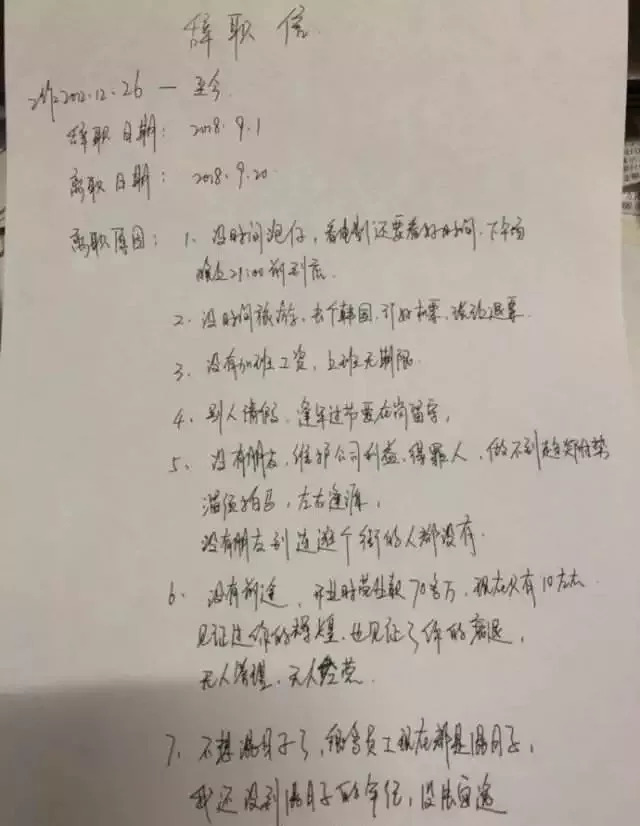 辞职信
工作2012.12.26 — 至今
辞职日期: 2018.9.1
离职日期: 2018.9.20
离职原因: 1、没时间泡仔,看电影还要看好时间,下午场
21:00前到店.
2、没时间旅游,去个韩国,订好机票,被迫退票
3、没有加班工资,上班无期限.
4、别人请假,逢年过节要在岗留守,
5、没有朋友,维护公司利益,得罪人,做不到趋炎附势
溜须拍马,左右逢源,
没有朋友到连逛个街的人都没有.
6、没有前途,开业时营业款70多万,现在只有10左右
见证过你的辉煌,也见证了你的衰退,
无人管理,无人经营.
7、不想混日子了,销售员工现在都是混日子,
我还没到混日子的年纪,没法